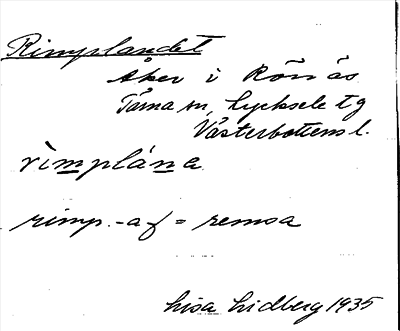 Rimplandet
Åker i Rönäs
Tärna sn, Lycksele tg
Västerbottens l.
rìmplána
rimp. -af = remsa
Lisa Lidberg 1935